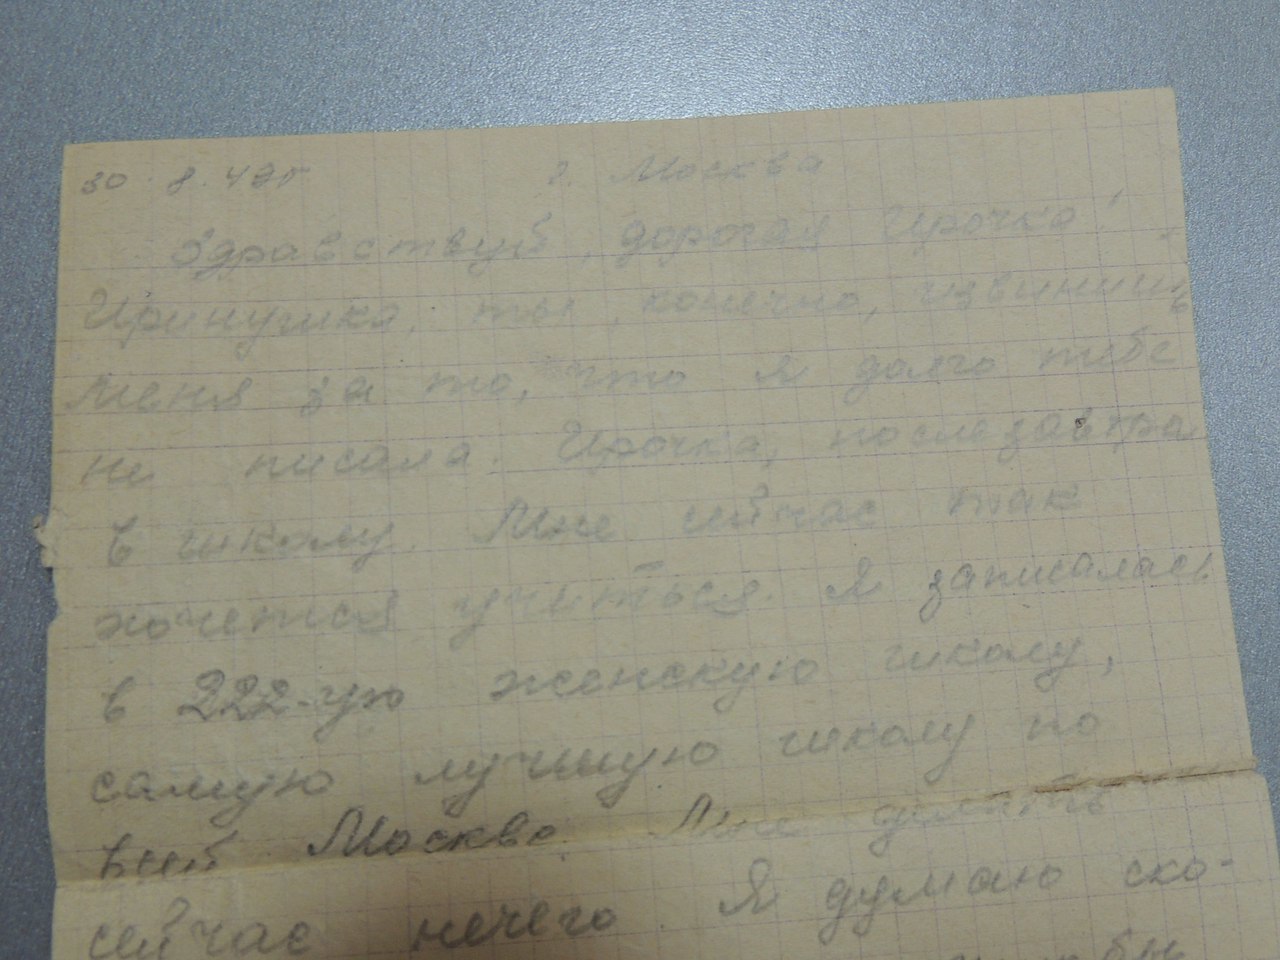 30. 8. 47г г. Москва
Здравствуй, дорогая Ирочка!
Иринушка, ты, конечно, извинишь
меня за то, что я долго тебе
не писала. Ирочка, послезавтра
в школу. Мне сейчас так
хочется учиться. Я записалась
в 222-ую женскую школу,
самую лучшую школу по
всей Москве. Мне делать
сейчас нечего. Я думаю ско-